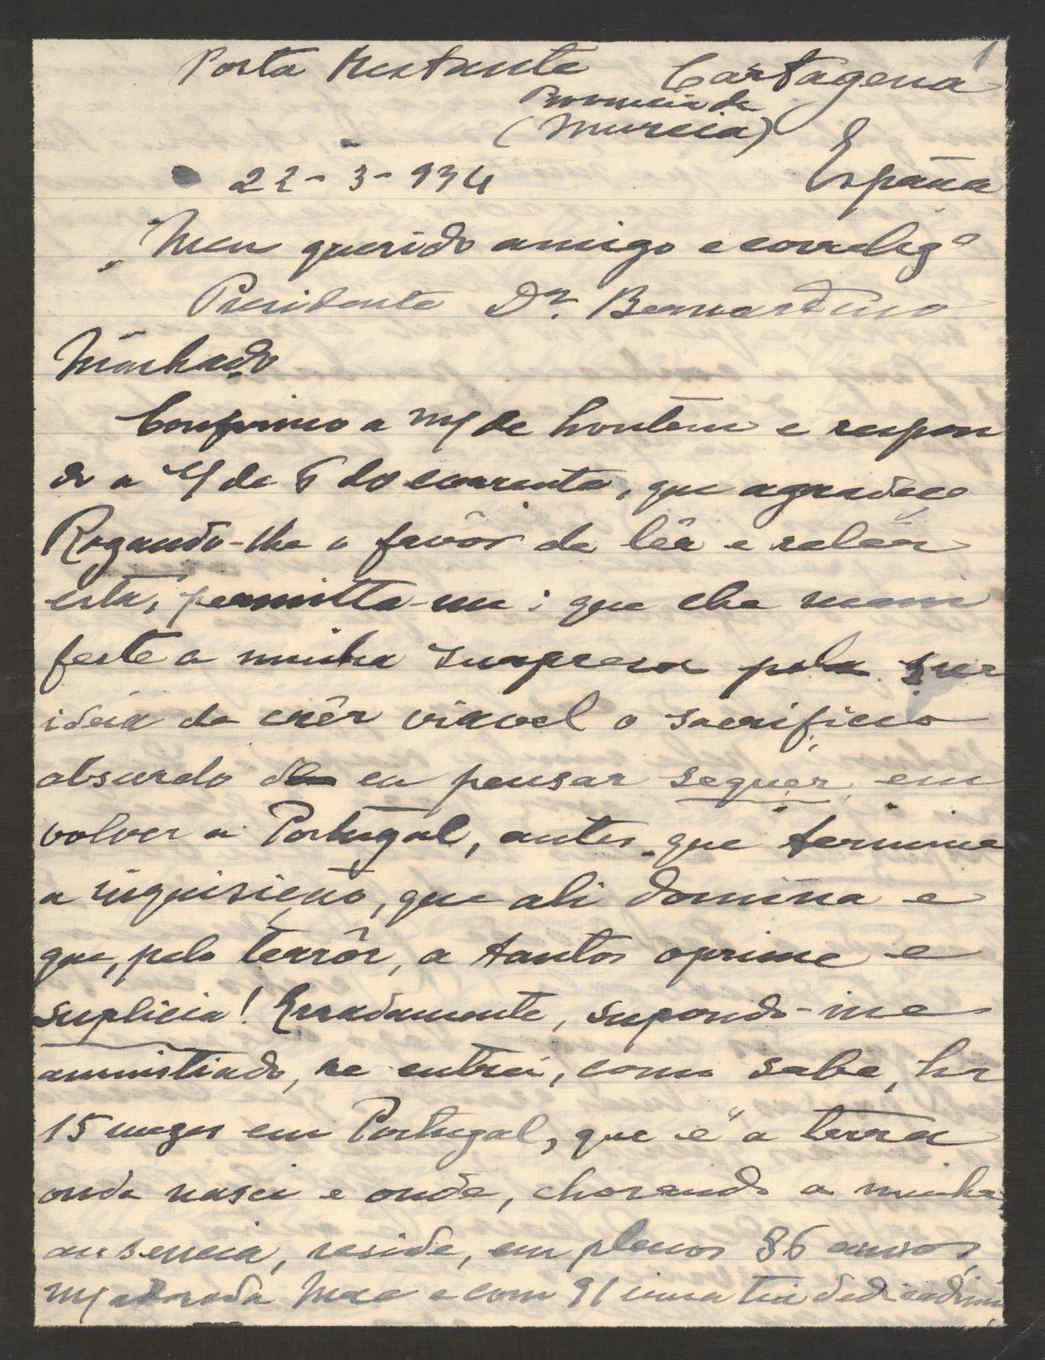 1
Posta Restante Cartagena
Provincia de
(Murcia)
22-3-934 España
Meu querido amigo e correligº
Presidente Dr. Bernardino
Machado
Confirmo a m/ de hontem e respon
do a V/ de 6 do corrente, que agradeço
Rogando-lhe o favôr de lêr e relêr
esta, permitta-me: que lhe mani
feste a minha surpresa pela sua
ideia de crêr viavel o sacrificio
absurdo de eu pensar sequer em
volver a Portugal, antes que termine
a inquisição, que ali domina e
que, pelo terrôr, a tantos oprime e
suplicia! Erradamente, supondo-me
amnistiado, re-entrei, como sabe, ha
15 mezes em Portugal, que é a terra
onde nasci e onde, chorando a minha
ausencia, reside, em plenos 86 annos,
m/ adorada Mãe e com 91 uma tia